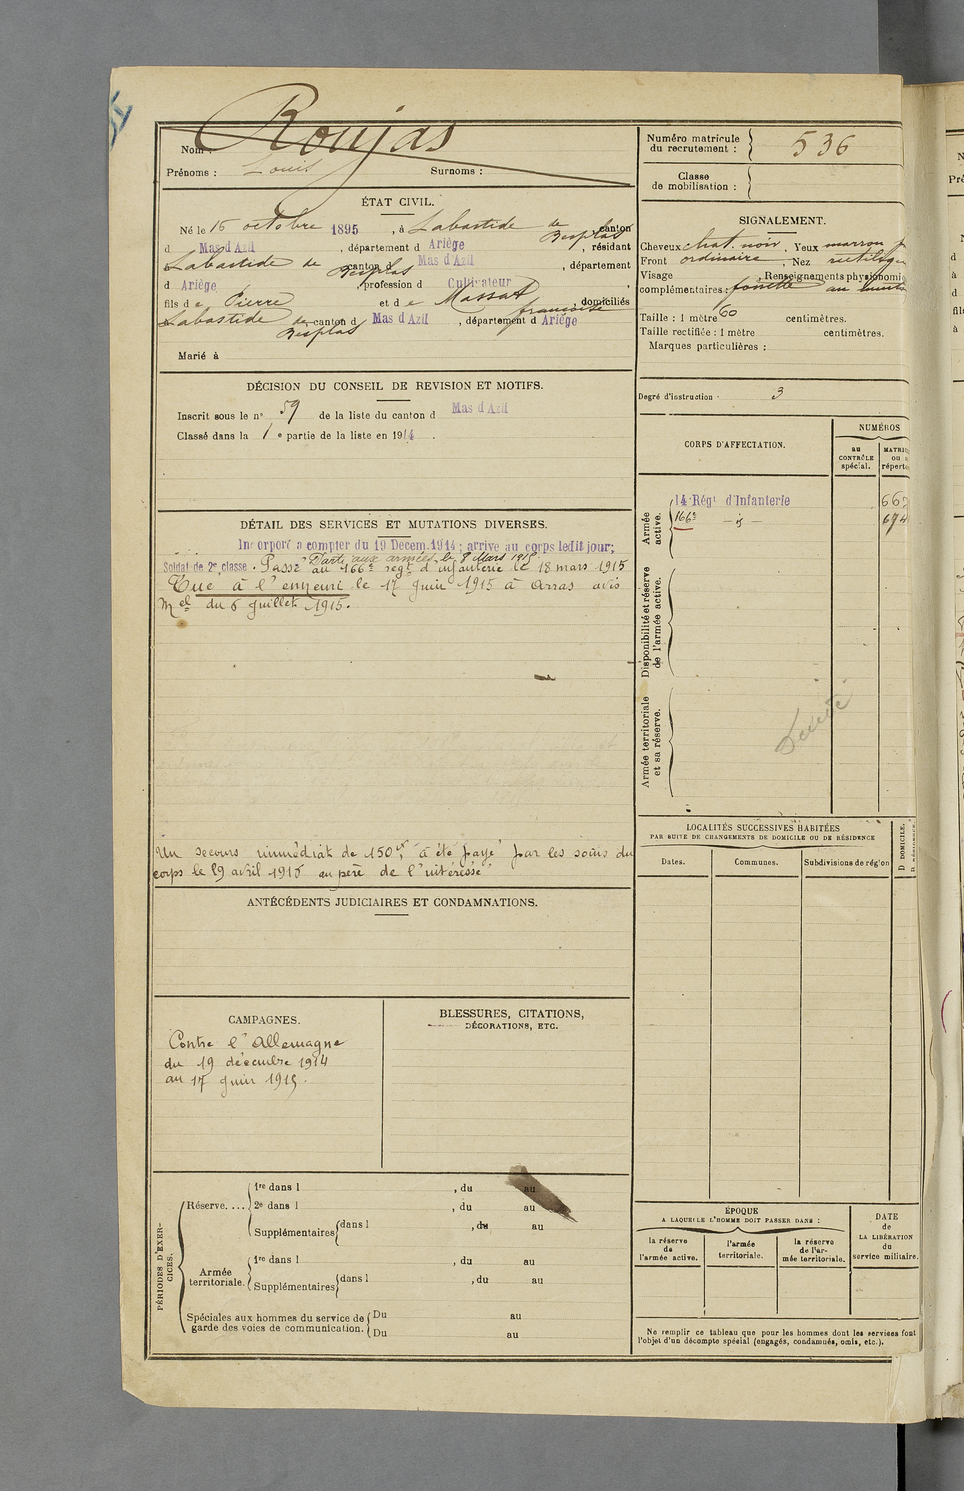 Nom : Roujas
Prénoms : Louis Surnoms :
ÉTAT CIVIL.
Né le 15 octobre 1895, à Labastide de Besplas, canton
d Mas d'Azil, département d Ariège, résidant
Labastide de Besplas canton d Mas d'Azil, département
d Ariège, profession d Cultivateur,
fils de Pierre et de Massat françoise, domiciliés
Labastide de Besplas canton d Mas d'Azil, département d Ariège
Marié à
DÉCISION DU CONSEIL DE REVISION ET MOTIFS.
Inscrit sous le n° 59 de la liste du canton d Mas d'Azil
Classé dans la 1e partie de la liste en 1914.
DÉTAIL DES SERVICES ET MUTATIONS DIVERSES.
Incorporé à compter du 19 Décem. 1914; arrivé au corps ledit jour;
Parti aux armées le 8 Mars 1915.
Soldat de 2e classe. Passé au 166e régt d'infanterie le 18 mars 1915
Tué à l'ennemi le 17 Juin 1915 à Arras avis
Mel du 6 Juillet 1915.
Un secours immédiat de 150f, a été payé par les soins du
corps le 29 avril 1916 au père de l'intéressé
ANTÉCÉDENTS JUDICIAIRES ET CONDAMNATIONS.
CAMPAGNES.
Contre l'Allemagne
du 19 décembre 1914
au 17 Juin 1915.
BLESSURES, CITATIONS,
DÉCORATIONS, ETC.
PÉRIODES D'EXERCICES.
Réserve....
1re dans l , du au
2e dans l , du au
Supplémentaires dans l , du au
Armée
territoriale.
1re dans l , du au
Supplémentaires dans l , du au
Spéciales aux hommes du service de
garde des voies de communication.
Du au
Du au
Numéro matricule
du recrutement : 536
Classe
de mobilisation :
SIGNALEMENT.
Cheveux chat. noir, Yeux marron
Front ordinaire, Nez rectiligne
Visage , Renseignements physionomi
complémentaires : fossette au menton
Taille : 1 mètre 60 centimètres.
Taille rectifiée : 1 mètre centimètres.
Marques particulières :
Degré d'instruction : 3
CORPS D'AFFECTATION.
NUMÉROS
au
CONTRÔLE
spécial.
MATRIC
ou
réperto
Armée
active.
14e Régt d'Infanterie
166e — d° —
Disponibilité et réserve
de l'armée active.
Armée territoriale
et sa réserve.
LOCALITÉS SUCCESSIVES HABITÉES
PAR SUITE DE CHANGEMENTS DE DOMICILE OU DE RÉSIDENCE
Dates.
Communes.
Subdivisions de région
D. DOMICILE.
R. RÉSIDENCE.
ÉPOQUE
A LAQUELLE L'HOMME DOIT PASSER DANS :
la réserve
de
l'armée active.
l'armée
territoriale.
la réserve
de l'ar-
mée territoriale.
DATE
de
LA LIBÉRATION
du
service militaire.
Ne remplir ce tableau que pour les hommes dont les services font
l'objet d'un décompte spécial (engagés, condamnés, omis, etc.).